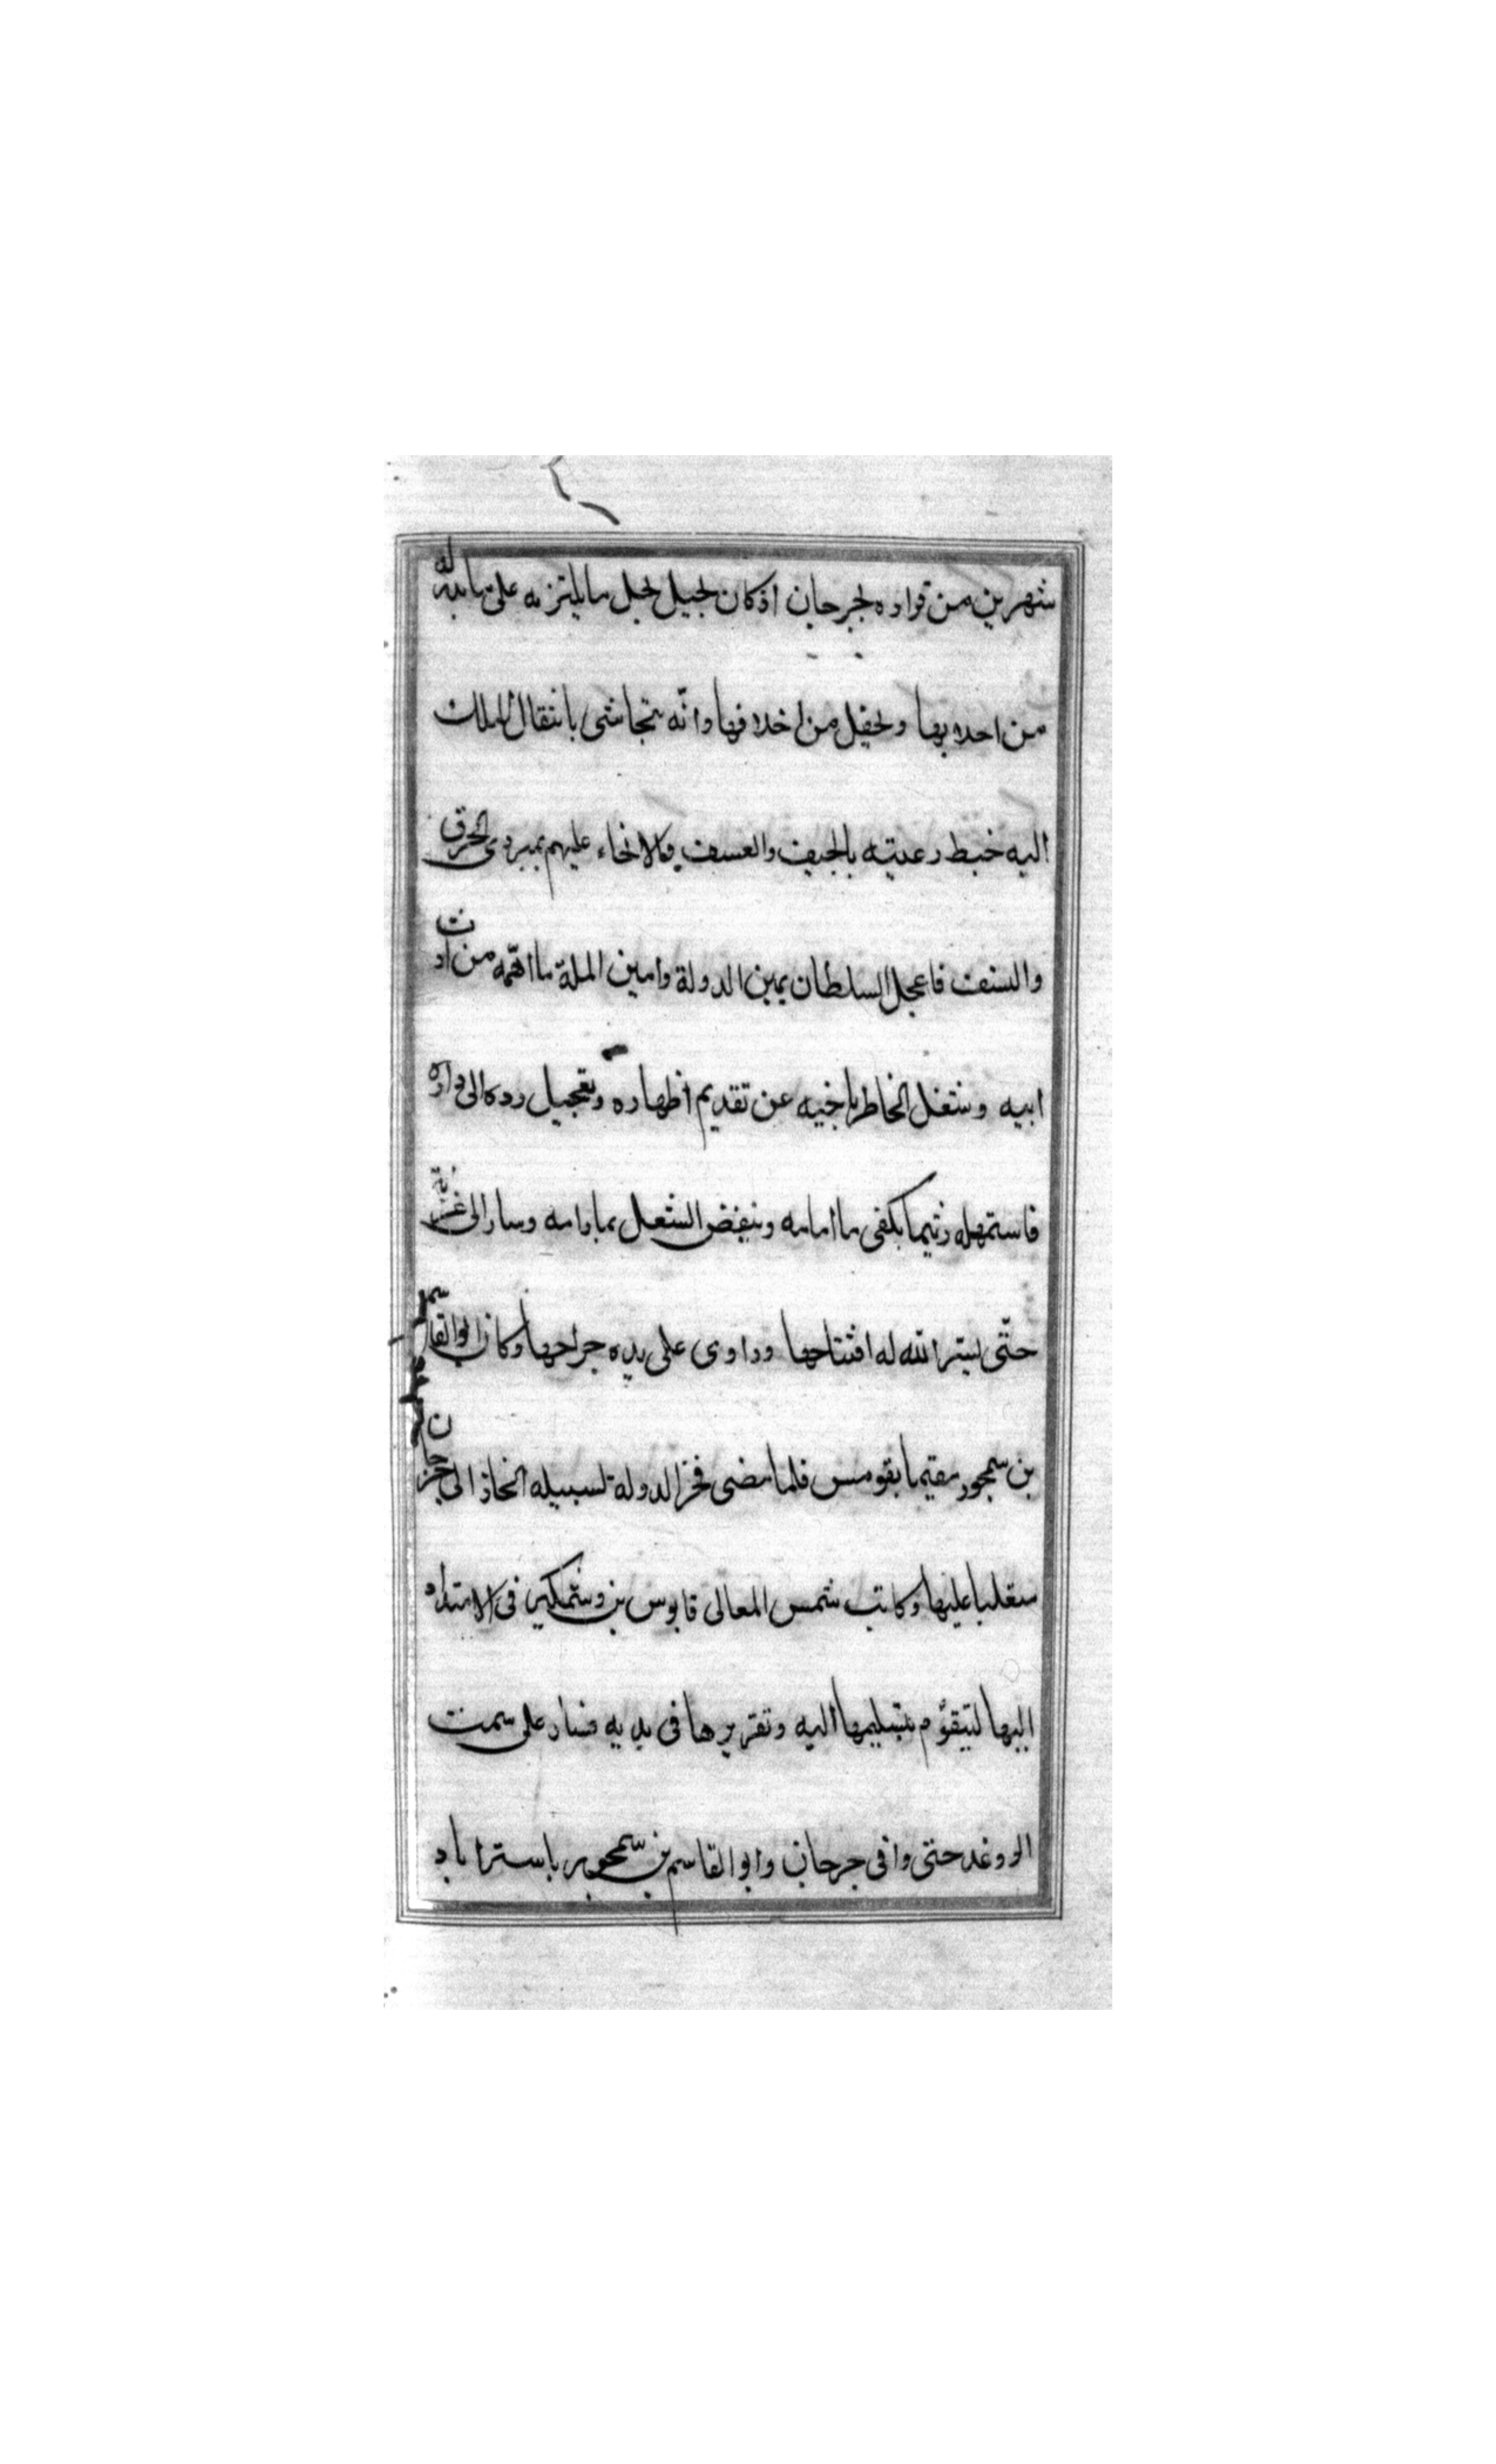 شهرين من قراره لجرجان اذ كان لجيل لجل ما يلتزمه على ما بدله
من احلابها ولحفل من اخلافها وانه يتحاشى بانتقال الملك
اليه خبط رعيته بالحيف والعسف والانحاء عليهم بمبردى الخرق
والسنف فاعجل السلطان يمين الدولة وامين الملة ما اهمه من ارث
ابيه وشغل الخاطر باخيه عن تقديم اظهاره وتعجيل رده الى داره
فاستمهله ريثما يكفى ما امامه وينفض الشغل بما رامه وسار الى غزنة
حتى يسر الله له افتتاحها وداوى على يده جراحها وكان ابو القاسم
بن سمجور مقيما بقومس فلما مضى فخر الدولة لسبيله انحاز الى جرجان
متغلبا عليها وكاتب شمس المعالى قابوس بن وشمكير فى الامتداد
اليها ليتقوم بتسليمها اليه وتقريرها فى يديه فسار على سمت
الروغد حتى وافى جرجان وابو القاسم بن سمجور باستراباد